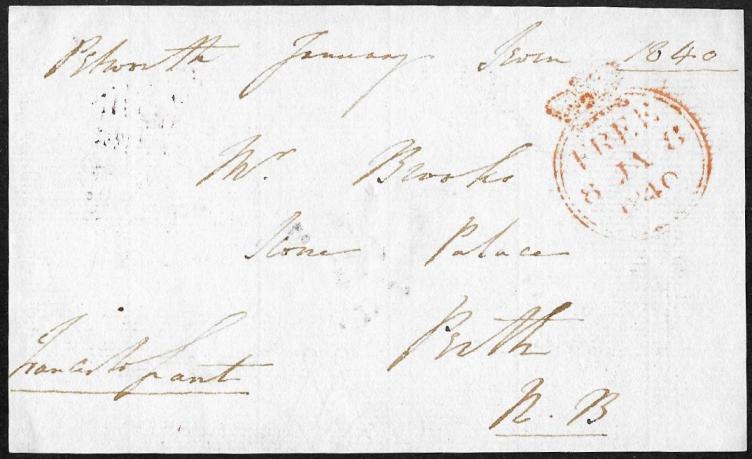 Petworth January Seven 1840
FREE
8 JA 8
1840
Mr. Brooks
Scone Palace
Perth
N. B
Grant